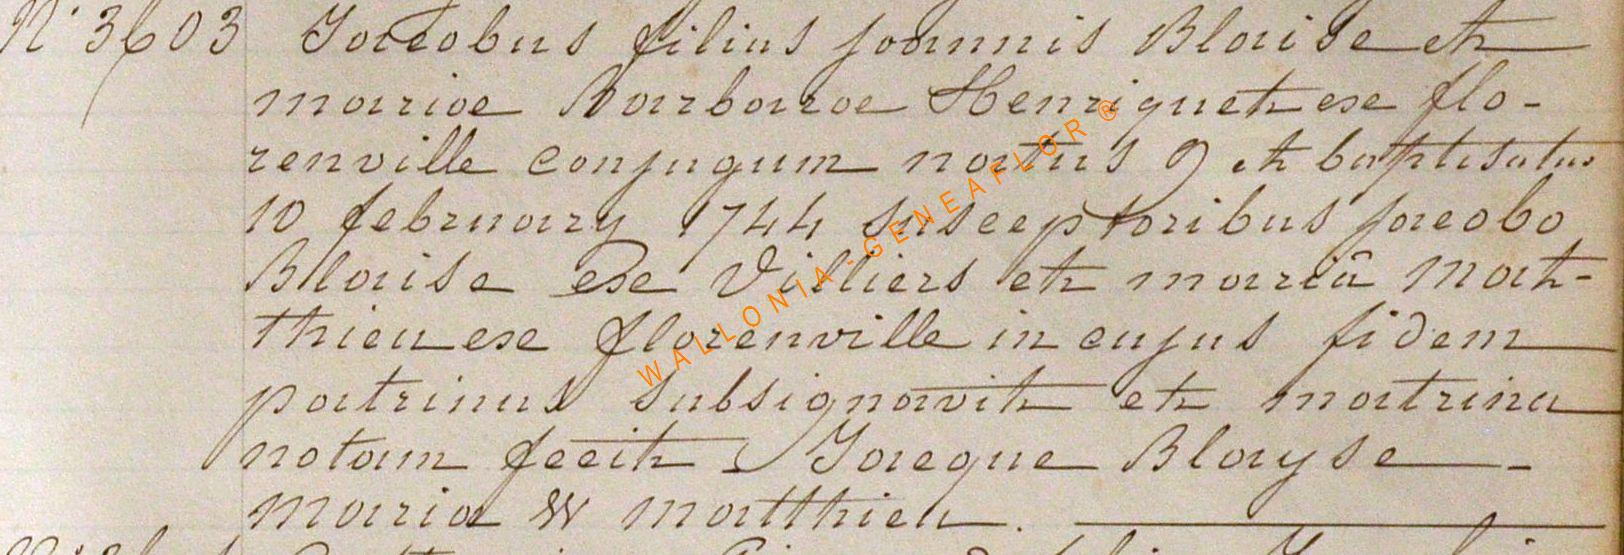 N° 3603 Jacobus filius joannis Blaise et
mariae Barbarae Henriquet ex flo-
renville conjugum natus 9 et baptisatus
10 february 1744 susceptoribus jacobo
Blaise ex Villiers et mariâ Mat-
thieu ex florenville in cujus fidem
patrinus subsignavit et matrina
notam fecit Jacque Blayse
maria matthieu.
WALLONIA-GENEAFLOR®